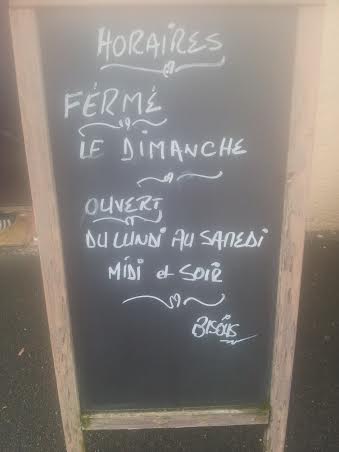 HORAIRES
FÉRMÉ
LE DIMANCHE
OUVERT
DU LUNDI AU SAMEDI
MIDI et SOIR
BISOUS